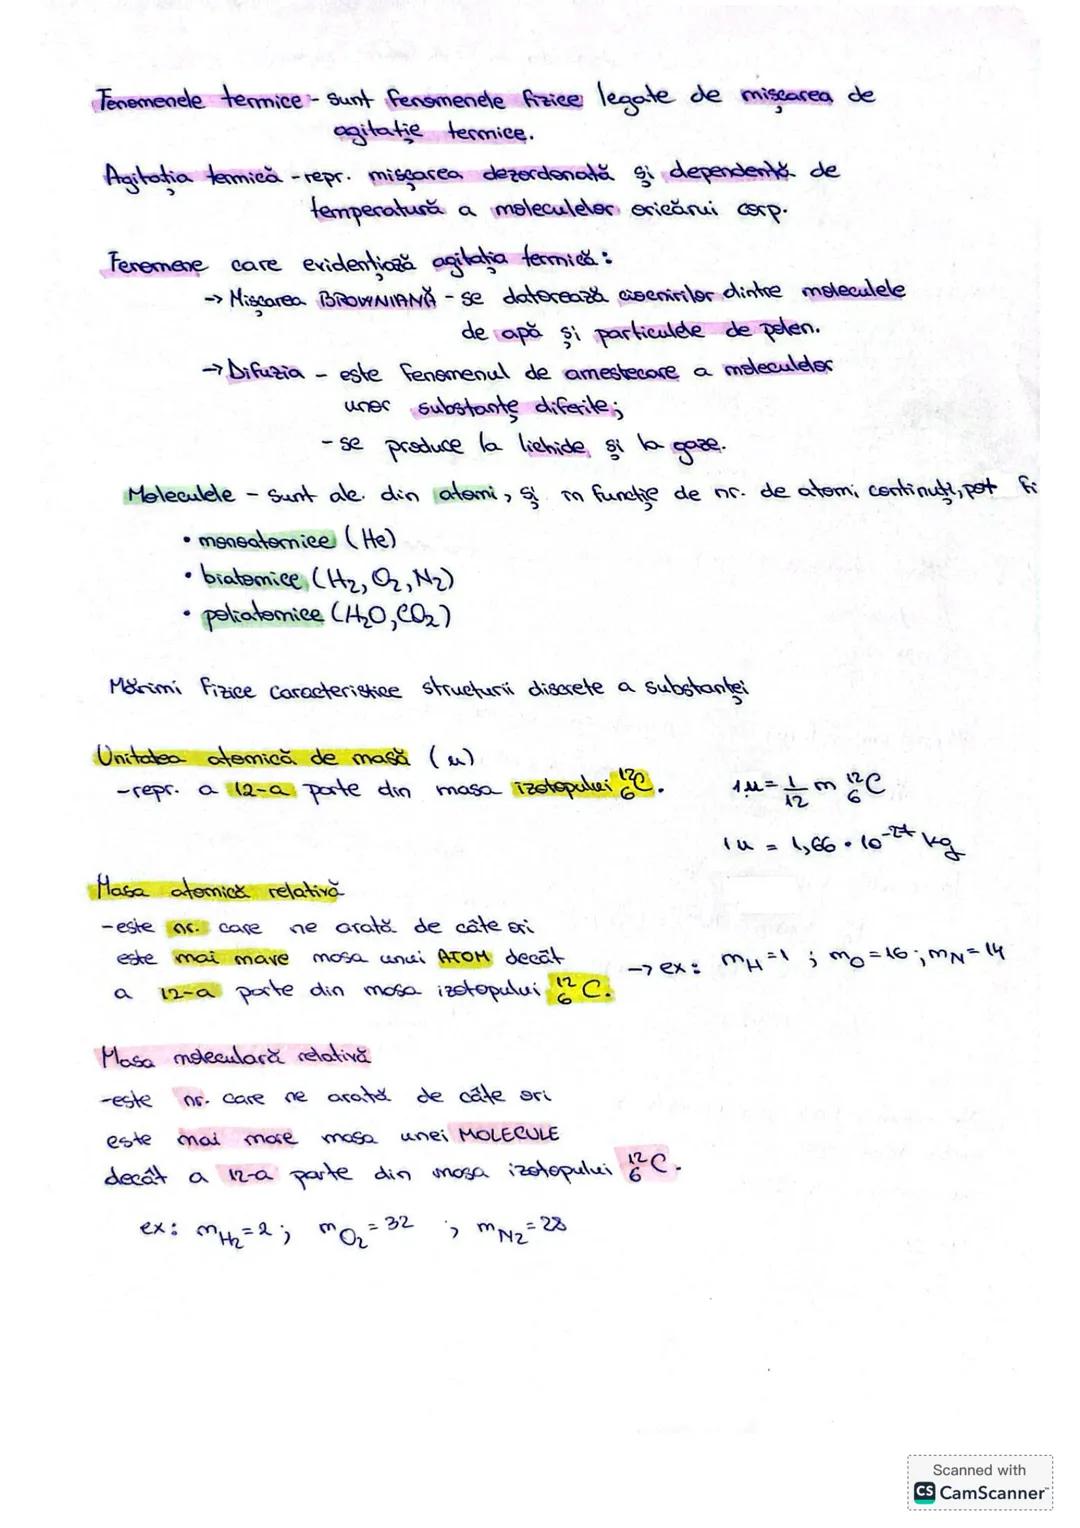 Fenomenele termice - sunt fenomenele fizice legate de mișcarea de
agitație termice.
Agitația termică - repr. mișcarea dezordonată și dependentă de
temperatură a moleculelor oricărui corp.
Fenomene care evidențiază agitația termică:
→ Mișcarea BROWNIANĂ - se datorează ciocnirilor dintre moleculele
de apă și particulele de polen.
→ Difuzia - este fenomenul de amestecare a moleculelor
unor substanțe diferite;
- se produce la lichide și la gaze.
Moleculele - sunt alc. din atomi, și în funcție de nr. de atomi conținuți, pot fi
• monoatomice (He)
• biatomice (H₂, O₂, N₂)
• poliatomice (H₂O, CO₂)
Mărimi fizice caracteristice structurii discrete a substanței
Unitatea atomică de masă (u)
- repr. a 12-a parte din masa izotopului ¹²₆C. 1u = 1/12 m ¹²₆C
1u = 1,66 • 10⁻²⁷ kg
Masa atomică relativă
- este nr. care ne arată de câte ori
este mai mare masa unui ATOM decât
a 12-a parte din masa izotopului ¹²₆C. → ex: m_H = 1 ; m_O = 16 ; m_N = 14
Masa moleculară relativă
- este nr. care ne arată de câte ori
este mai mare masa unei MOLECULE
decât a 12-a parte din masa izotopului ¹²₆C.
ex: m_H₂ = 2 ; m_O₂ = 32 ; m_N₂ = 28
Scanned with
CS CamScanner